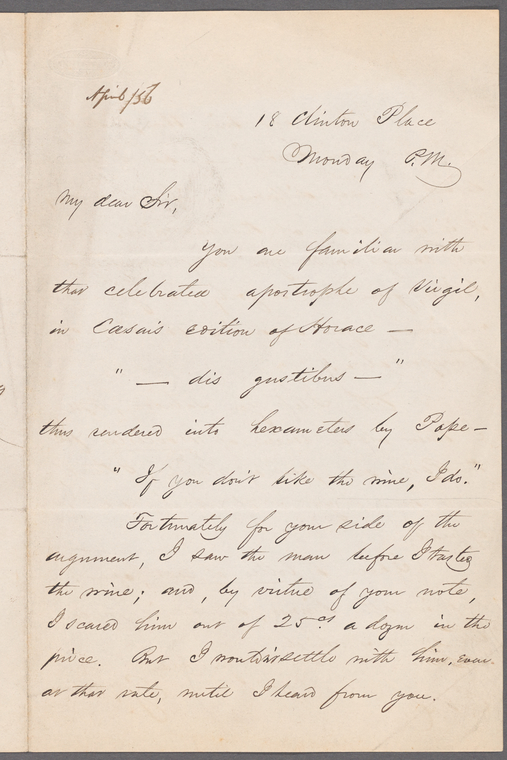 April/56
18 Clinton Place
Monday P.M.
My dear Sir,
You are familiar with
that celebrated apostrophe of Virgil,
in Cæsar's edition of Horace —
" — dis gustibus — "
thus rendered into hexameters by Pope —
" If you don't like the wine, I do."
Fortunately for your side of the
argument, I saw the man before I tasted
the wine; and, by virtue of your note,
I scared him out of 25 cts a dozn in the
price. But I wouldn't settle with him, even
at that rate, until I heard from you.